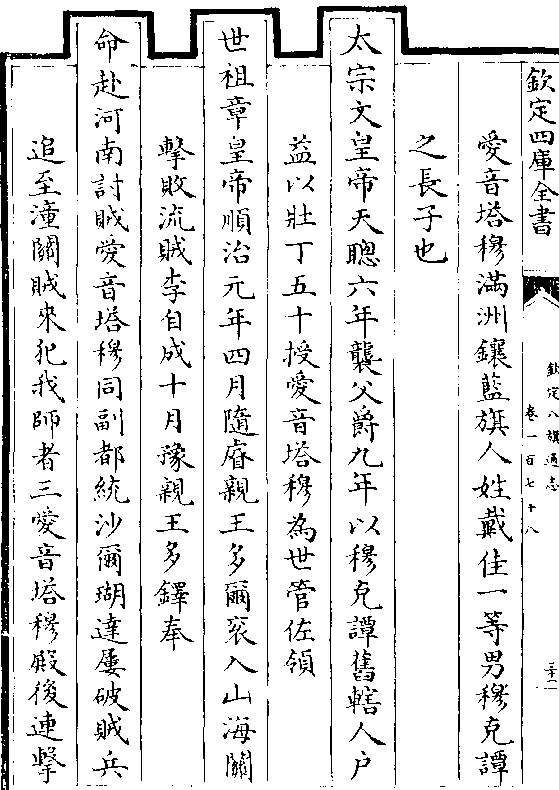 欽定四庫全書
欽定八旗通志
卷一百七十八
三十二
愛音塔穆滿洲鑲藍旗人姓戴佳一等男穆克譚
之長子也
太宗文皇帝天聰六年襲父爵九年以穆克譚舊轄人户
益以壯丁五十授愛音塔穆為世管佐領
世祖章皇帝順治元年四月隨睿親王多爾衮入山海關
擊敗流賊李自成十月豫親王多鐸奉
命赴河南討賊愛音塔穆同副都統沙爾瑚達屢破賊兵
追至潼關賊來犯我師者三愛音塔穆殿後連擊